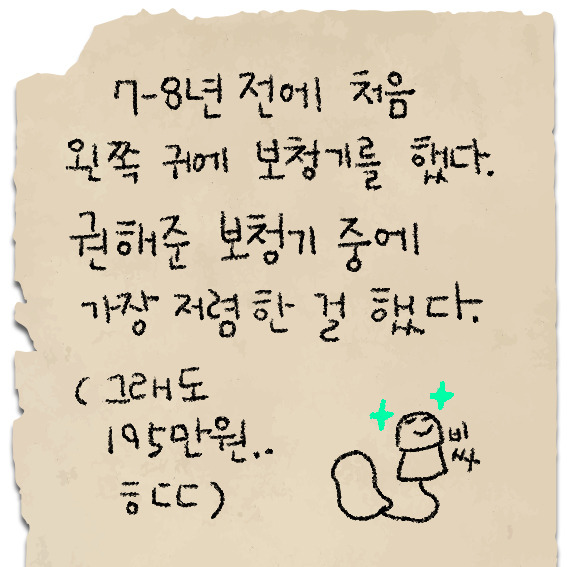 7-8년 전에 처음
왼쪽 귀에 보청기를 했다.
권해준 보청기 중에
가장 저렴한 걸 했다.
(그래도
195만원..
ㅎㄷㄷ)
비싸